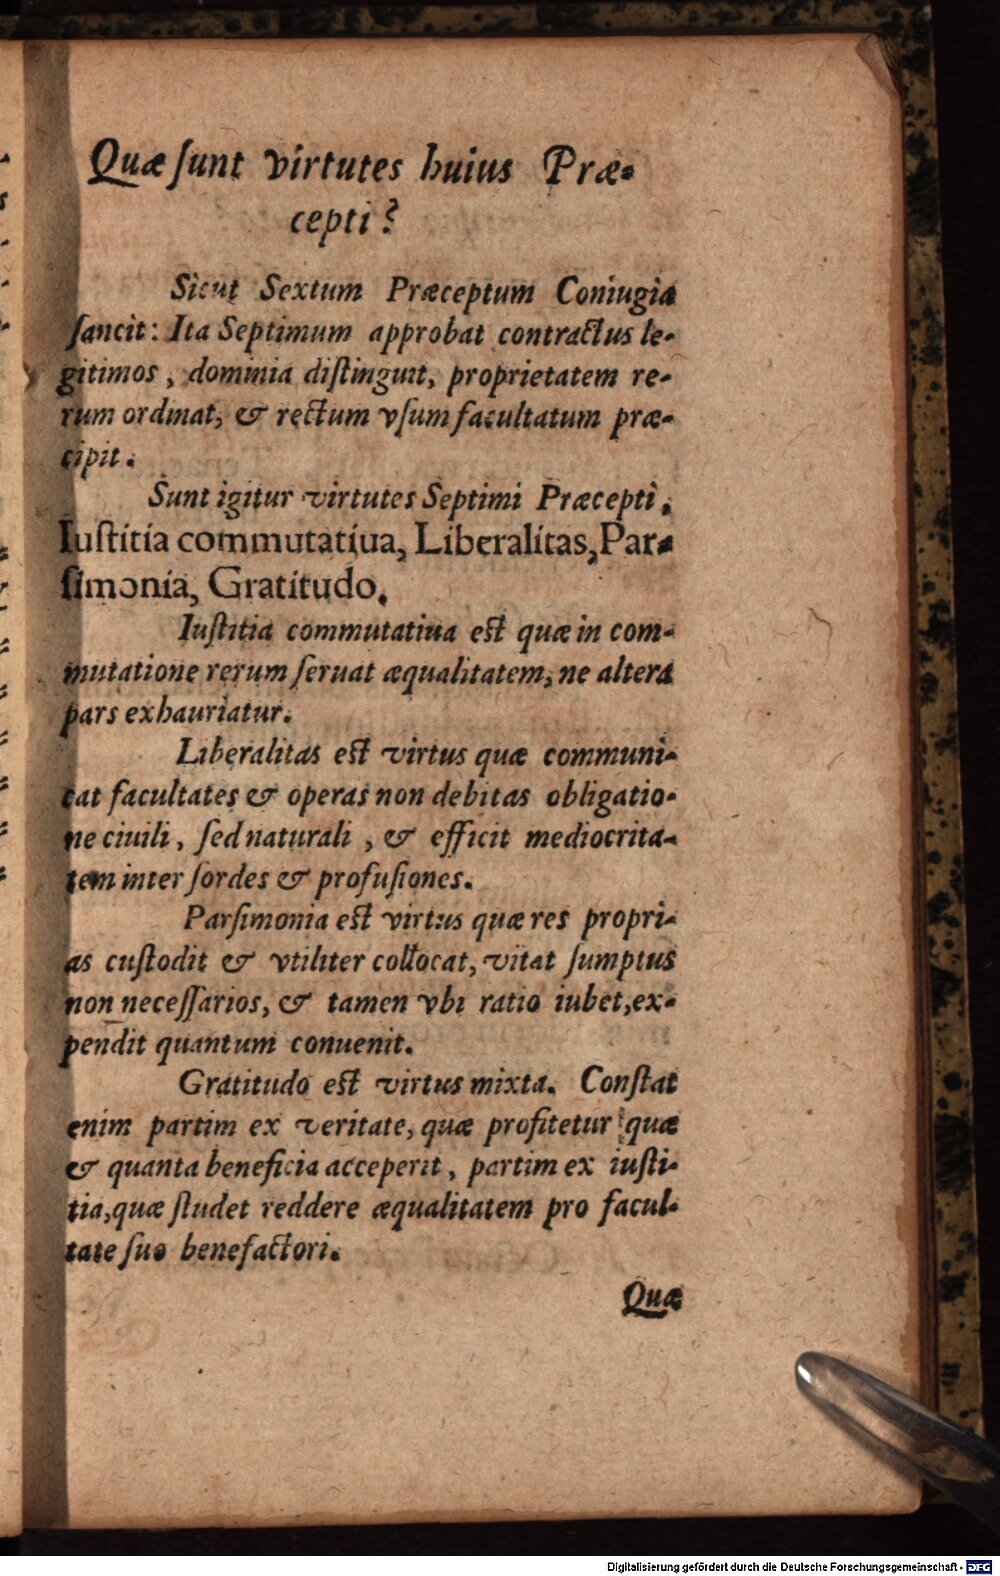 Quæ ſunt virtutes huius Præ-
cepti?
Sicut Sextum Præceptum Coniugia
ſancit: Ita Septimum approbat contractus le-
gitimos, dominia diſtinguit, proprietatem re-
rum ordinat, & rectum vſum facultatum præ-
cipit.
Sunt igitur virtutes Septimi Præcepti,
Iuſtitia commutatiua, Liberalitas, Par-
ſimonia, Gratitudo.
Iuſtitia commutatiua est quæ in com-
mutatione rerum ſeruat æqualitatem, ne altera
pars exhauriatur.
Liberalitas est virtus quæ communi-
cat facultates & operas non debitas obligatio-
ne ciuili, ſed naturali, & efficit mediocrita-
tem inter ſordes & profuſiones.
Parſimonia est virtus quæ res propri-
as cuſtodit & vtiliter collocat, vitat ſumptus
non neceſſarios, & tamen vbi ratio iubet, ex-
pendit quantum conuenit.
Gratitudo est virtus mixta. Conſtat
enim partim ex veritate, quæ profitetur quæ
& quanta beneficia acceperit, partim ex iuſti-
tia, quæ ſtudet reddere æqualitatem pro facul-
tate ſuo benefactori.
Quæ
Digitalisierung gefördert durch die Deutsche Forschungsgemeinschaft - DFG